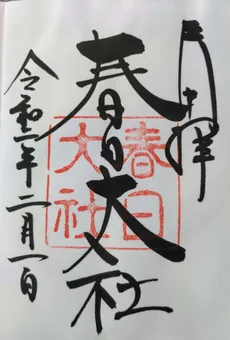 拝
春日大社
春日
大社
令和二年二月一日